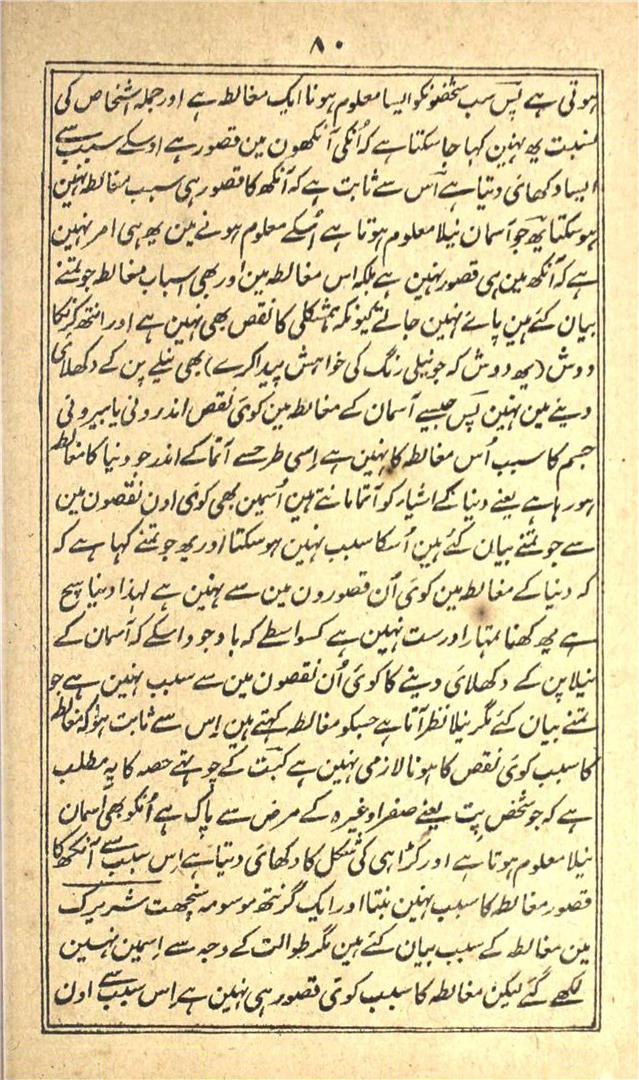 ۸۰
ہوتی ہے پس سب شخصونکو ایسا معلوم ہونا ایک مغالطہ ہے اور جملہ اشخاص کی
نسبت یہ نہین کہا جا سکتا ہے کہ اُنکی آنکھون مین قصور ہے اوسکے سبب سے
ایسا دکھائی دیتا ہے اس سے ثابت ہے کہ آنکھ کا قصور ہی سبب مغالطہ نہین
ہو سکتا یہ جو آسمان نیلا معلوم ہوتا ہے اُسکے معلوم ہونے مین یہ ہی امر نہین
ہے کہ آنکھ مین ہی قصور نہین ہے بلکہ اس مغالطہ مین اور بھی اسباب مغالطہ جو تمنے
بیان کئے ہین پائے نہین جاتے کیونکہ ہمشکلی کا نقص بھی نہین ہے اور انتھ کرنکا
دوش (یہ دوش کہ جو نیلی رنگ کی خواہش پیدا کرے) بھی نیلے پن کے دکھلائی
دینے مین نہین پس جیسے آسمان کے مغالطہ مین کوئی نقص اندرونی یا بیرونی
جسم کا سبب اُس مغالطہ کا نہین ہے اِسی طرح سے آتما کے اندر جو دنیا کا مغالطہ
ہو رہا ہے یعنے دنیا کے اشیاء کو آتما مانتے ہین اُسمین بھی کوئی اون نقصون مین
سے جو تمنے بیان کئے ہین اُسکا سبب نہین ہو سکتا اور یہ جو تمنے کہا ہے کہ
کہ دنیا کے مغالطہ مین کوئی اُن قصورون مین سے نہین ہے لہذا دنیا سچ
ہے یہ کھنا تمہارا درست نہین ہے کسواسطے کہ باوجود اسکے کہ آسمان کے
نیلا پن کے دکھلائی دینے کا کوئی اُن نقصون مین سے سبب نہین ہے جو
تمنے بیان کئے مگر نیلا نظر آتا ہے جسکو مغالطہ کہتے ہین اِس سے ثابت ہوا کہ مغالطہ
کا سبب کوئی نقص کا ہونا لازمی نہین ہے کبت کے چوتہے حصہ کا یہ مطلب
ہے کہ جو شخص پت یعنے صفرا وغیرہ کے مرض سے پاک ہے اُنکو بھی آسمان
نیلا معلوم ہوتا ہے اور کڑاہی کی شکل کا دکھائی دیتا ہے اِس سبب سے آنکھ کا
قصور مغالطہ کا سبب نہین بنتا اور ایک گرنتھ موسومہ سنچھت شریرک
مین مغالطہ کے سبب بیان کئے ہین مگر طوالت کے وجہ سے اِسمین نہین
لکھے گئے لیکن مغالطہ کا سبب کوئی قصور ہی نہین ہے اس سبب سے اون